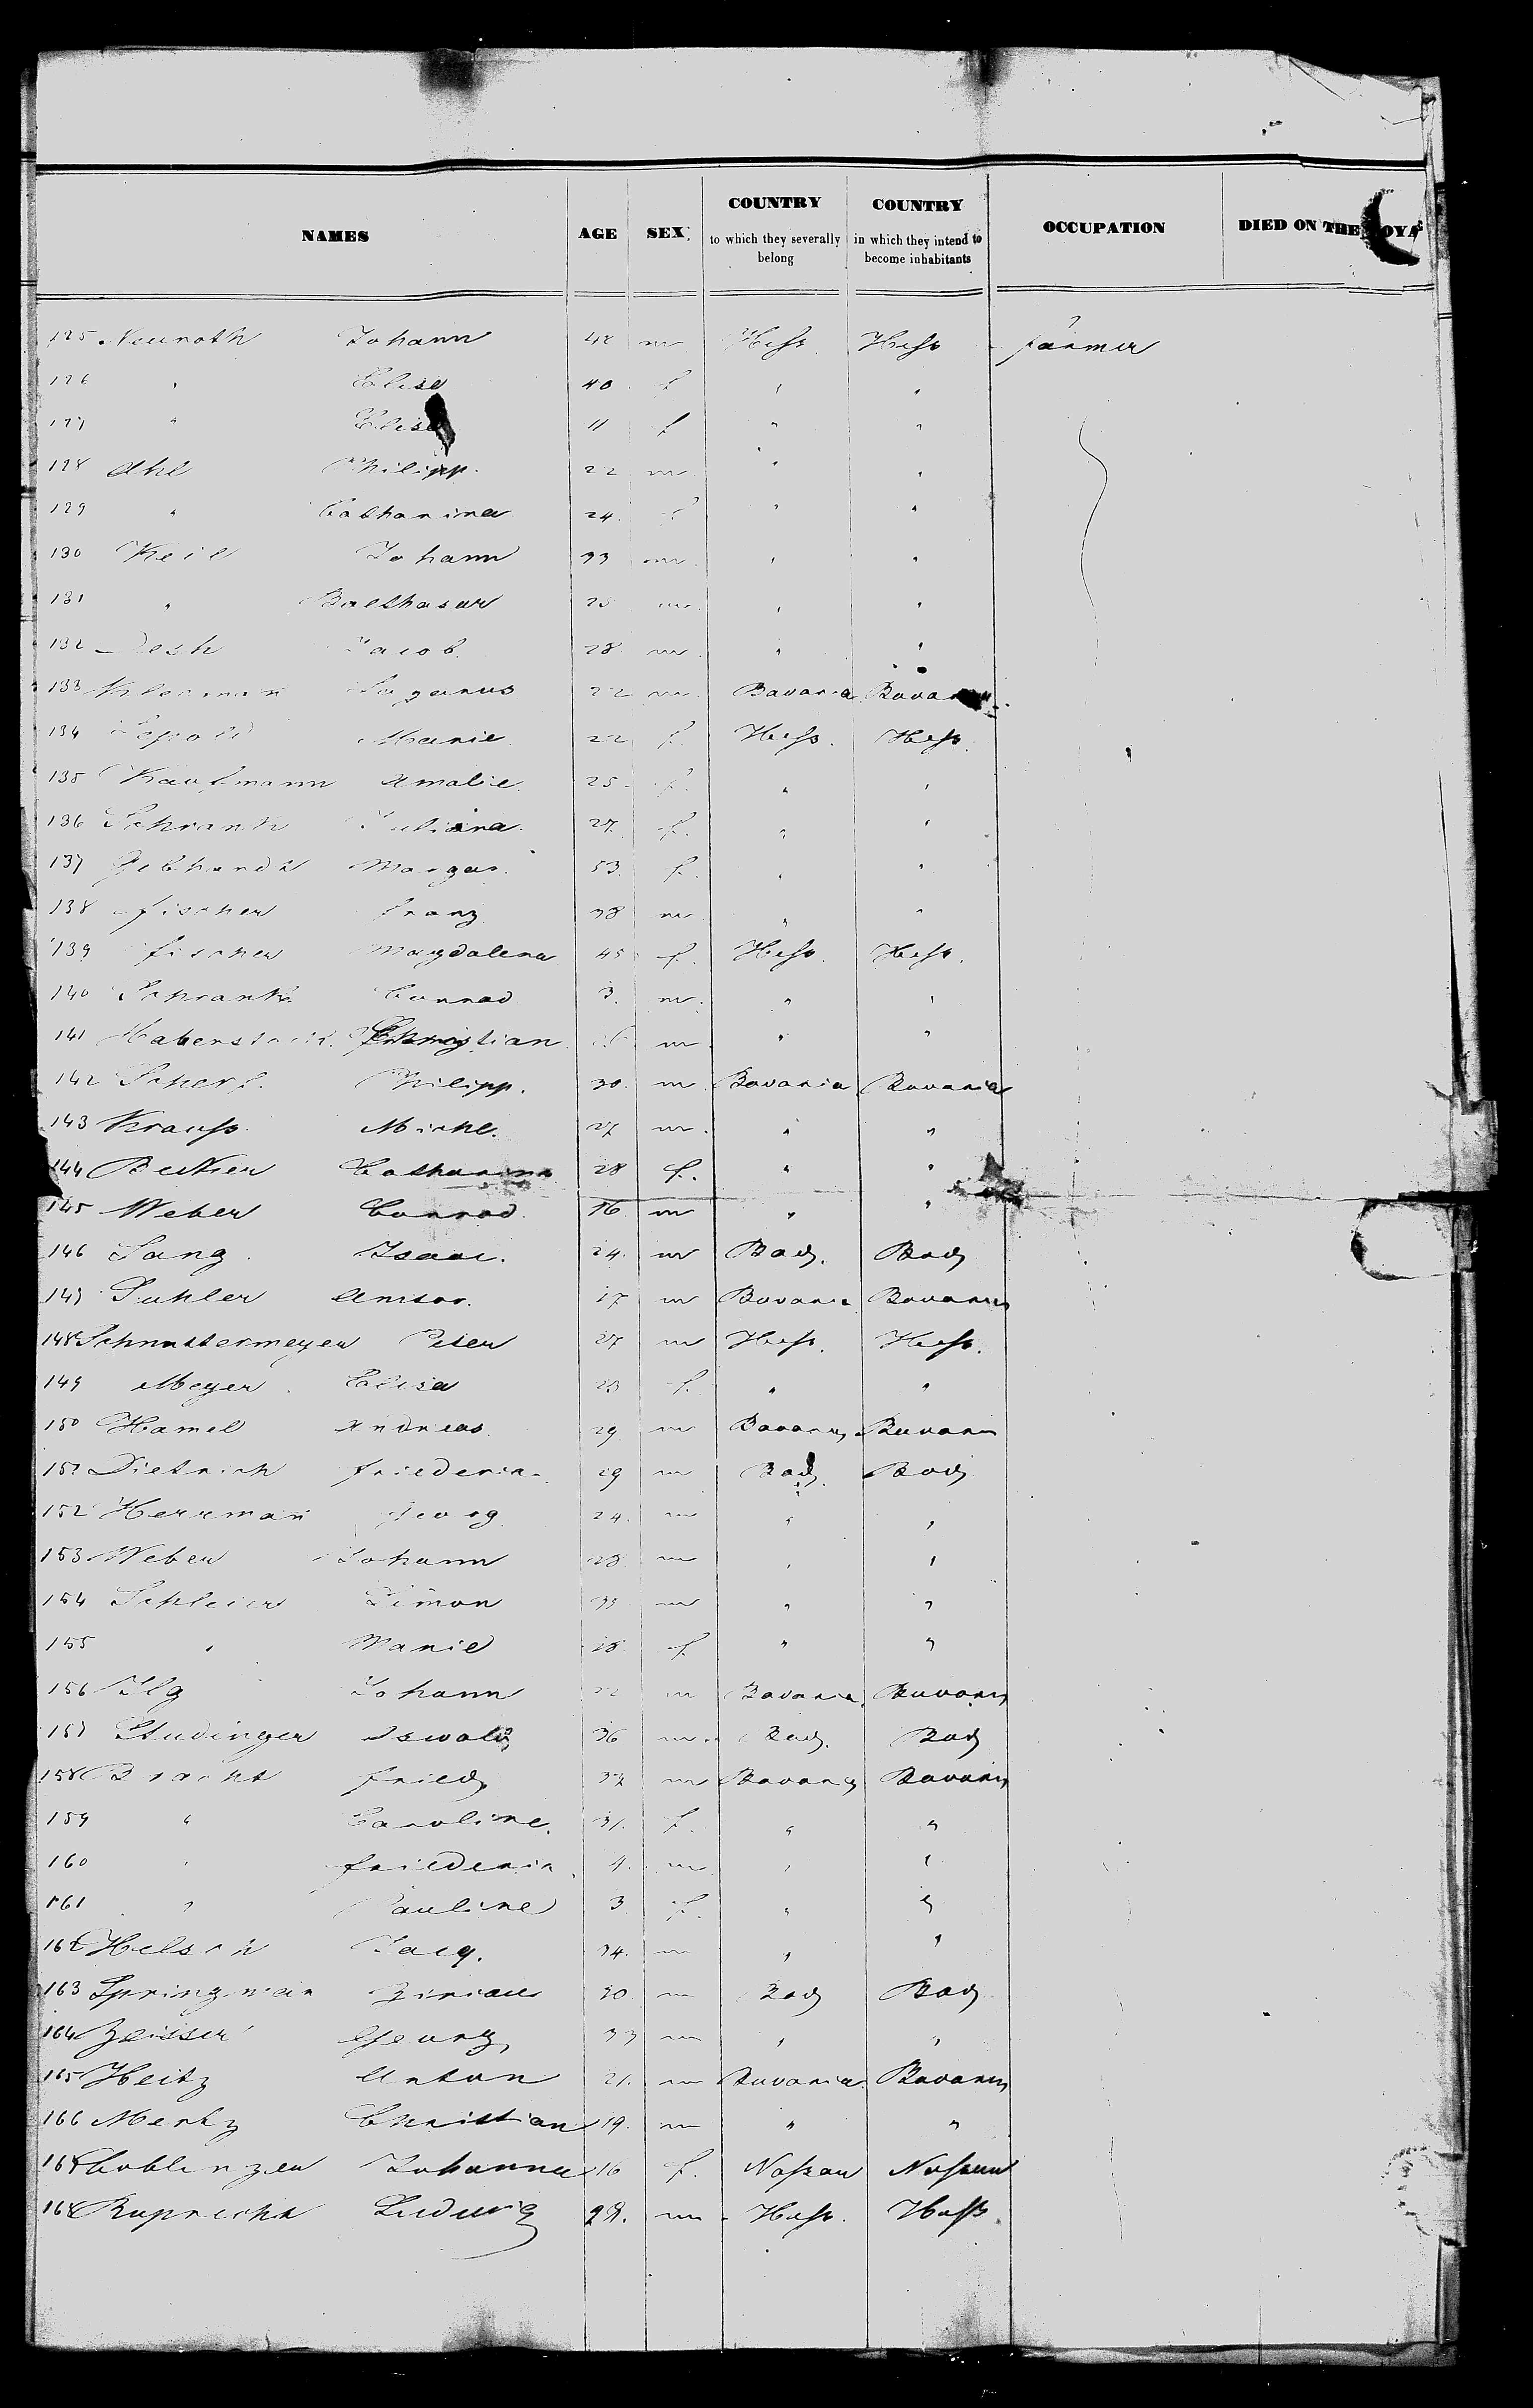 NAMES AGE SEX COUNTRY to which they severally belong COUNTRY in which they intend to become inhabitants OCCUPATION DIED ON THE
125 Neuroth Johann 48 m Hess Hess farmer
126 " Elise 40 f " "
127 " Elise 11 f " "
128 Ahl Philipp. 22 m " "
129 " Catharina 24. f " "
130 Keil Johann 33 m " "
131 " Balthasar 25 m " "
132 Jacob. 28 m " "
133 22 m Bavaria
134 Marie 22 f. Hess. Hess.
135 Kaufmann Amalie 25. f. " "
136 Schrank Juliana. 27. f. " "
137 Gebhardt Margar. 53. f. " "
138 fischer franz 38 m " "
139 fischer Magdalena 45 f. Hess. Hess.
140 Schrank Conrad 3. m. " "
141 Christian m " "
142 Scherf. Philipp. 30. m Bavaria Bavaria
143 Krauss Michl. 27 m. " "
144 Catharina 28 f. " "
145 Weber Conrad 16 m " "
146 Isaac. 24. m Bad. Bad
147 17 m Bavaria Bavaria
148 Schnattermeyer Peter 27 m Hess. Hess.
149 Meyer. Elisa 23 f. " "
150 Hamel Andreas 29 m Bavaria Bavaria
151 Dietrich friederic. 29 m Bad. Bad
152 Herrman Georg 24. m " "
153 Weber Johann 28 m " "
154 Schleier Simon 35 m " "
155 " Marie 28 f " "
156 Ilg Johann 22 m Bavaria Bavaria
157 Studinger Oswald 36 m. Bad. Bad
158 fried m Bavaria Bavaria
159 " Caroline. 31. f. " "
160 " friederic. 4. m " "
161 " Pauline 3 f. " "
162 Jacq. 34. m " "
163 Springman 30. m Bad Bad
164 Georg 33 m " "
165 Heitz Anton 21. m Bavaria Bavaria
166 Mertz Christian 19. m " "
167 Coblenzer Johanna 16 f. Nassau Nassau
168 Ruprecht Ludwig 28. m Hess. Hess.